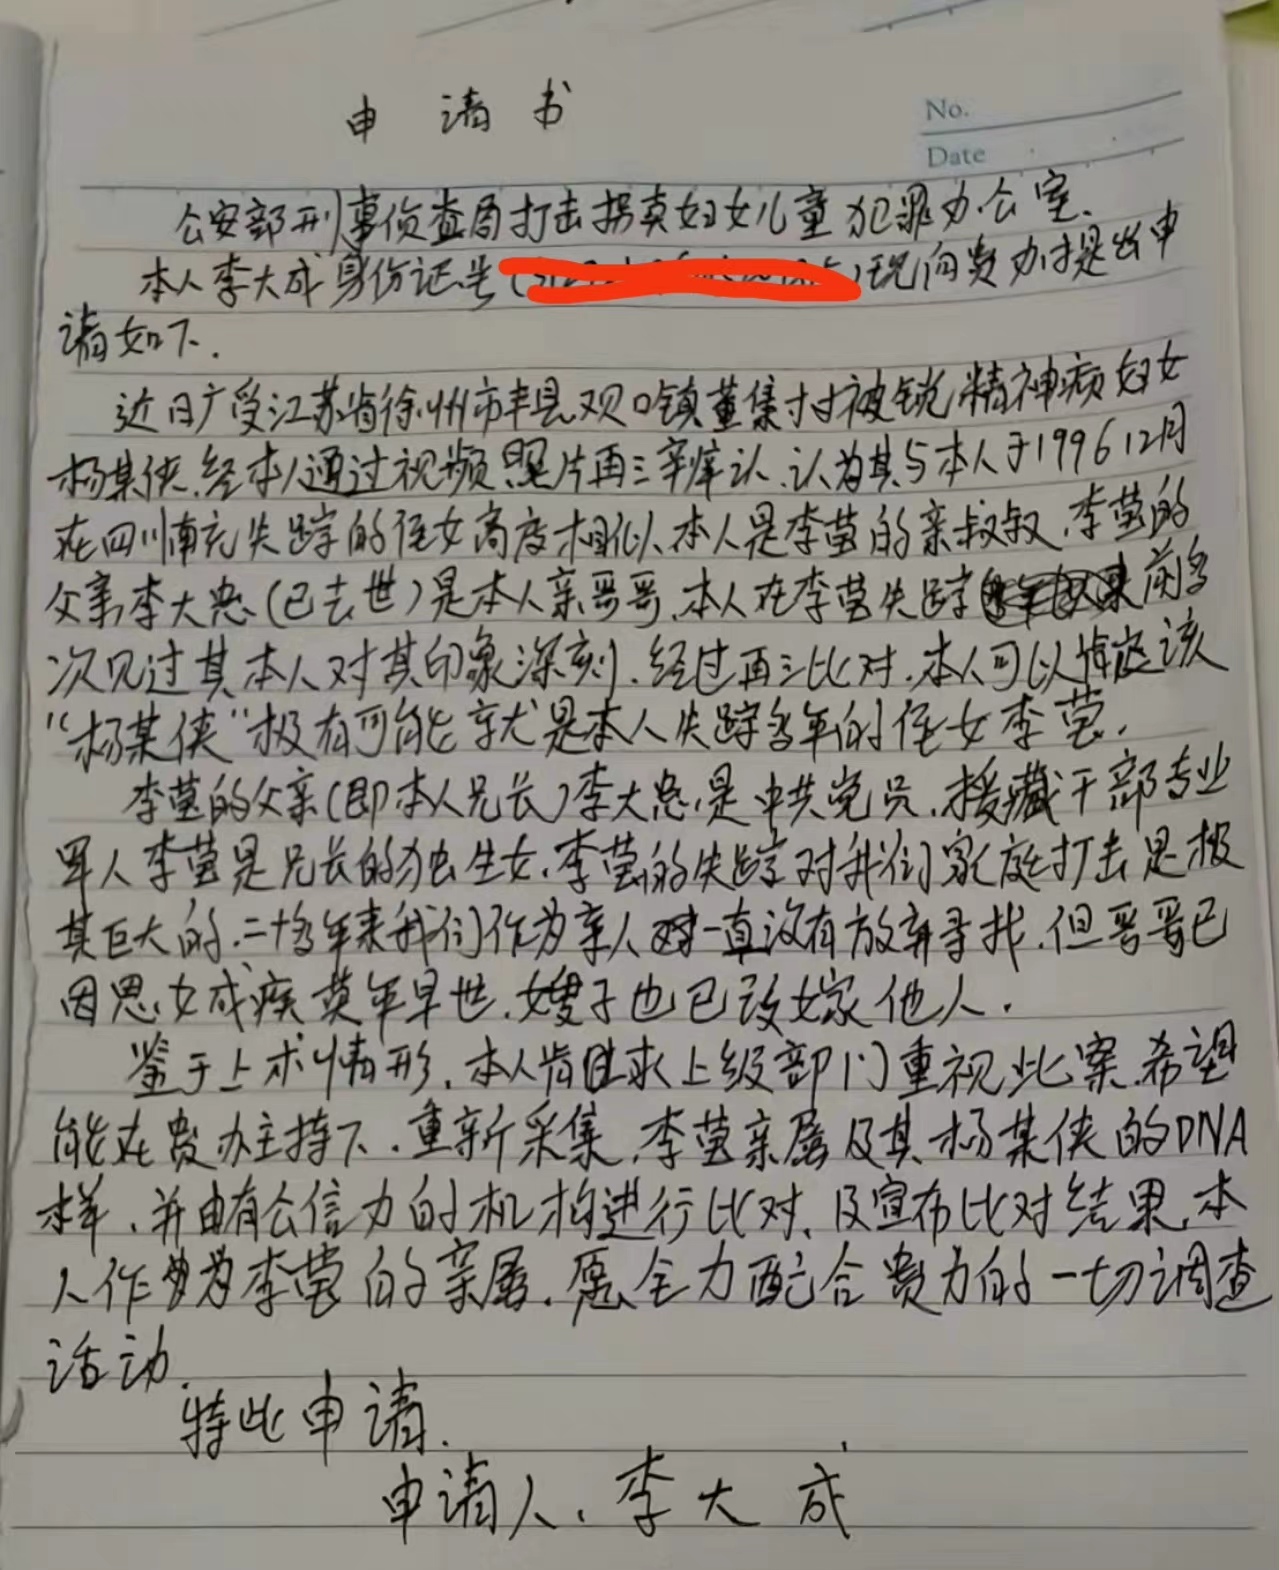 申请书
No.
Date
公安部刑事侦查局打击拐卖妇女儿童犯罪办公室.
本人李大成身份证号( )现向贵办提出申
请如下.
近日广受江苏省徐州市丰县欢口镇董集村被锁精神病妇女
杨某侠.经本人通过视频照片再三辨认.认为其与本人于1996 12月
在四川南充失踪的侄女高度相似.本人是李莹的亲叔叔.李莹的
父亲李大忠(已去世)是本人亲哥哥.本人在李莹失踪前多
次见过其本人对其印象深刻.经过再三比对.本人可以确定该
“杨某侠”极有可能就是本人失踪多年的侄女李莹.
李莹的父亲(即本人兄长)李大忠是中共党员.援藏干部专业
军人李莹是兄长的独生女.李莹的失踪对我们家庭打击是极
其巨大的.二十多年来我们作为亲人一直没有放弃寻找.但哥哥已
因思女成疾英年早世.嫂子也已改嫁他人.
鉴于上术情形.本人肯求上级部门重视此案.希望
能在贵办主持下.重新采集.李莹亲属及其杨某侠的DNA
样.并由有公信力的机构进行比对.及宣布比对结果.本
人作为李莹的亲属.愿全力配合贵办的一切调查
活动.
特此申请.
申请人.李大成